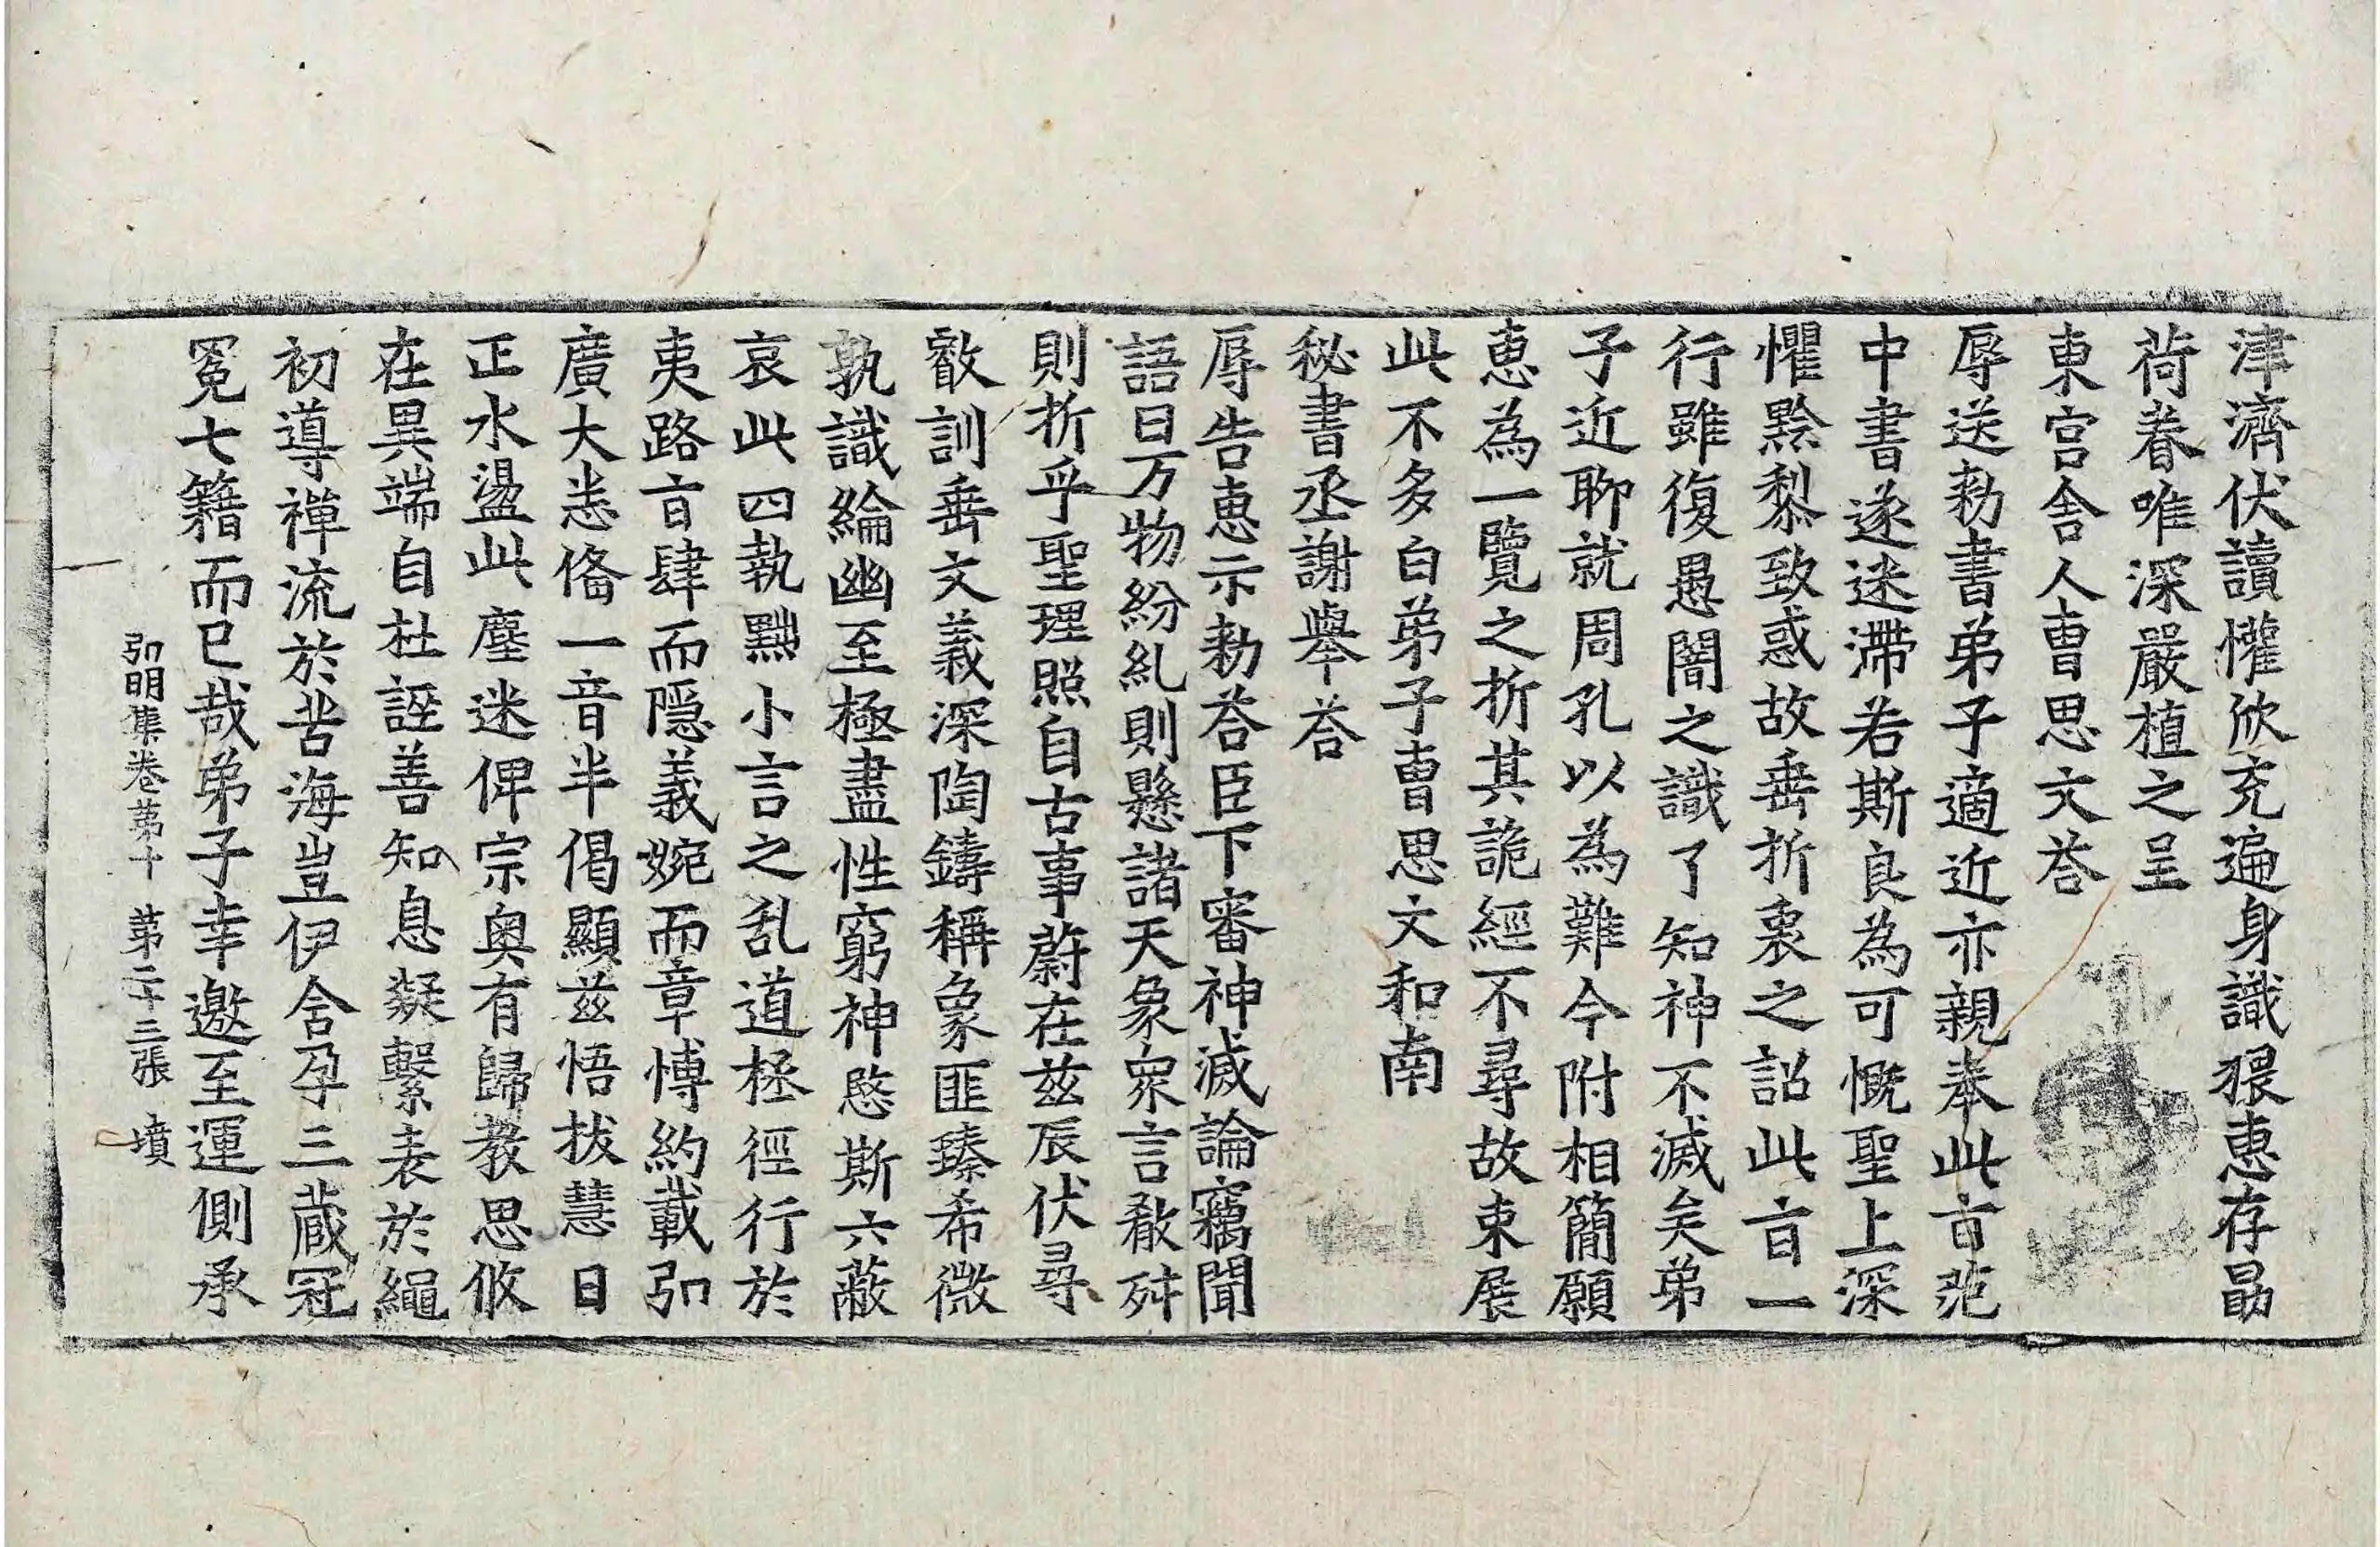 津濟伏讀懽欣充遍身識猥惠存勗
荷眷唯深嚴植之呈
東宮舍人曺思文荅
辱送勑書弟子適近亦親奉此旨范
中書遂迷滯若斯良為可慨聖上深
懼黔黎致惑故垂折衷之詔此旨一
行雖復愚闇之識了知神不滅矣弟
子近聊就周孔以為難今附相簡願
惠為一覽之折其詭經不尋故束展
此不多白弟子曺思文和南
秘書丞謝舉荅
辱告惠示勑荅臣下審神滅論竊聞
語曰万物紛糺則懸諸天象衆言殽舛
則折乎聖理照自古事蔚在兹辰伏尋
叡訓垂文義深陶鑄稱象匪臻希微
孰識綸幽至極盡性窮神愍斯六蔽
哀此四執黜小言之乱道拯徑行於
夷路旨肆而隱義婉而章博約載弘
廣大悉俻一音半偈顯兹悟拔慧日
正水盪此塵迷俾宗奥有歸教思攸
在異端自杜誣善知息凝繫表於繩
初導禪流於苦海豈伊舍孕三藏冠
冕七籍而已哉弟子幸邀至運側承
弘明集卷第十　第二十三張　墳